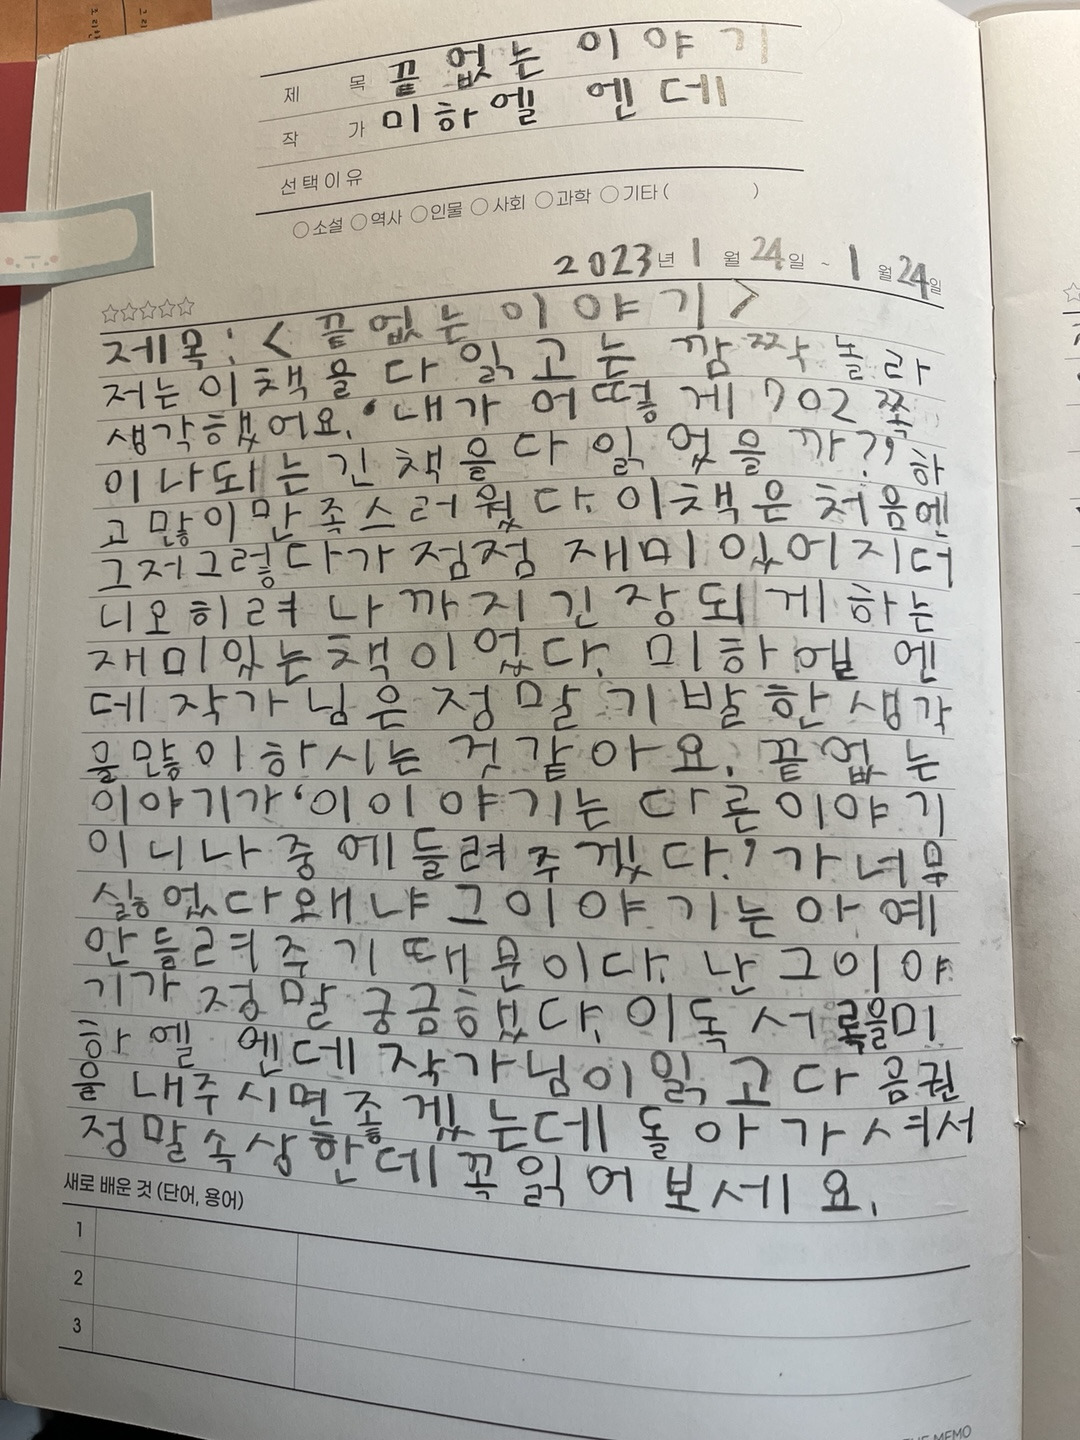 제 목 끝없는 이야기
작 가 미하엘 엔데
선택이유
○소설 ○역사 ○인물 ○사회 ○과학 ○기타 ( )
2023년 1월 24일 ~ 1월 24일
☆☆☆☆☆
제목: <끝없는이야기>
저는이책을다 읽고는 깜짝놀라
생각했어요.'내가 어떻게 702쪽
이나되는긴책을다 읽었을까?'하
고많이만족스러웠다.이책은처음엔
그저그렇다가 점점 재미있어지더
니오히려 나까지긴장되게하는
재미있는책이었다. 미하엘 엔
데 작가님은 정말 기발한생각
을많이하시는 것같아요. 끝없는
이야기가'이이야기는 다른이야기
이니나중에들려주겠다.'가너무
싫었다왜냐그이야기는아예
안들려주기때문이다. 난그이야
기가 정말궁금했다.이독서록을미
하엘 엔데 작가님이읽고다음권
을 내주시면좋겠는데돌아가셔서
정말속상한데꼭읽어보세요.
새로 배운 것 (단어, 용어)
1
2
3